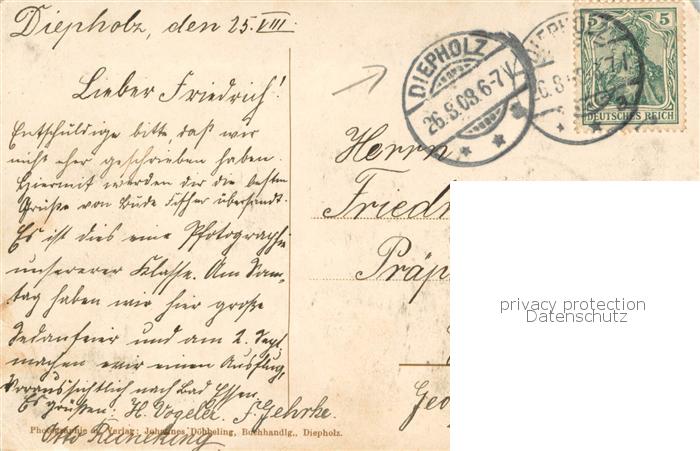 Diepholz, den 25. VIII.
Lieber Friedrich!
Entschuldige bitte daß wir
nicht eher geschrieben haben.
Hiermit werden dir die besten
Grüße von übersandt.
Es ist dies eine Pfotographie
unsererer Klasse. Am Sonn-
tag haben wir hier große
Sedanfeier und am 2. Sept.
machen wir einen Ausflug,
Voraussichtlich nach Bad Essen.
Es grüßen: H. Vogeler F. Gehrke.
Otto Reineking.
Photographie u. Verlag: Johannes Döbbeling, Buchhandlg., Diepholz.
DIEPHOLZ
26.8.08.6-7V.
DIEPHOLZ
5 5
DEUTSCHES REICH
Herrn
Friedr
Präp
Geo
privacy protection
Datenschutz